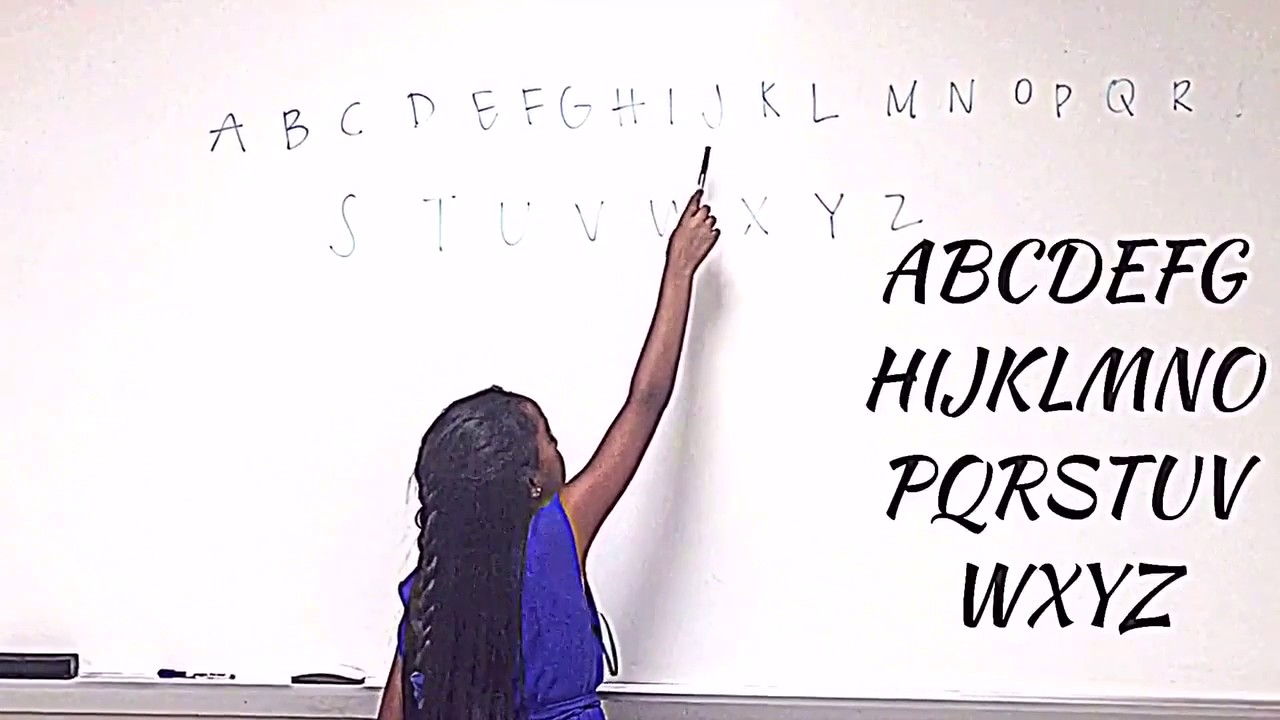 A B C D E F G H I J K L M N O P Q R
S T U V W X Y Z
ABCDEFG
HIJKLMNO
PQRSTUV
WXYZ